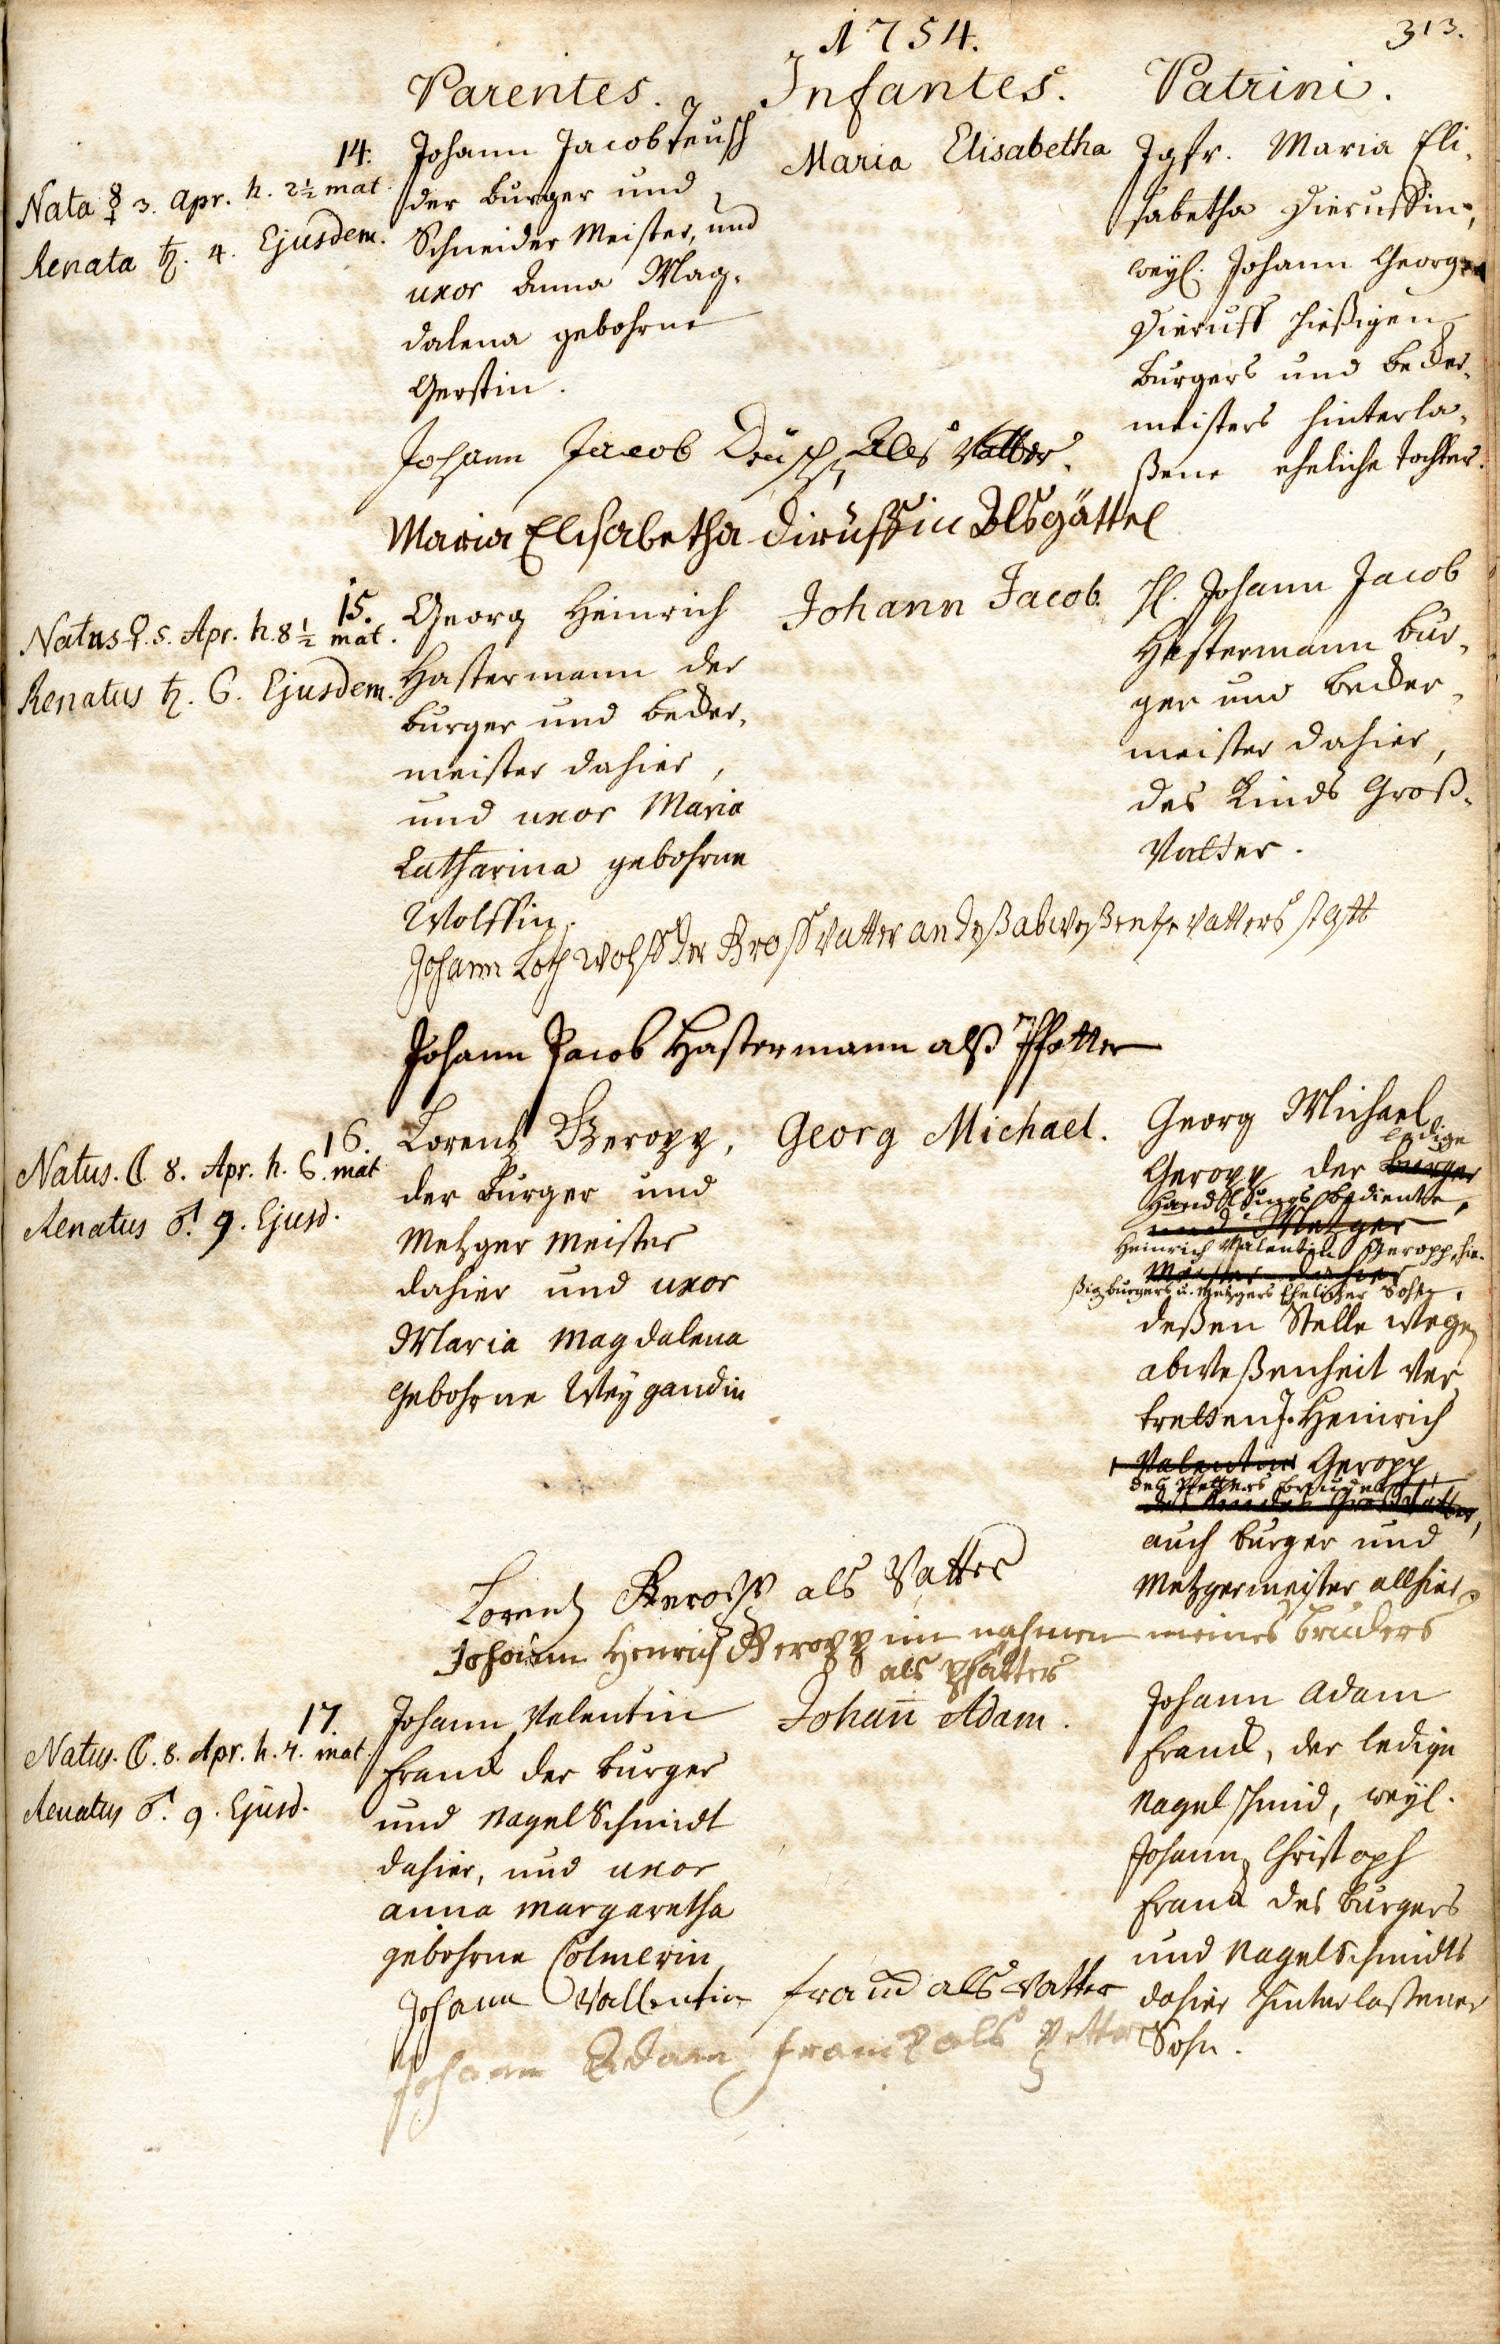 1754.
313.
Parentes. Infantes. Patrini.
14.
Nata ☿ 3. Apr. h. 2½ mat.
Renata ♄. 4. Ejusdem.
Johann Jacob Teusch
der burger und
Schneider Meister, und
uxor Anna Mag-
dalena gebohrne
Gerstin.
Maria Elisabetha
Jgfr. Maria Eli-
sabetha Dieruffin,
weyl. Johann Georg
Dieruff hießigen
burgers und becker-
meisters hinterla-
ßene eheliche tochter.
Johann Jacob Deusch Als Vatter.
Maria Elisabetha Dirüffin Als gättel
15.
Natus ♀. 5. Apr. h. 8½ mat.
Renatus ♄. 6. Ejusdem.
Georg Heinrich
Hastermann der
burger und becker-
meister dahier,
und uxor Maria
Catharina gebohrne
Wolffin.
Johann Jacob.
H. Johann Jacob
Hastermann bur-
ger und becker-
meister dahier,
des Kinds Groß-
Vatter.
Johann Loth Wolff der Großvatter an deß abweßente Vatters statt
Johann Jacob Hastermann alß Pfetter
16.
Natus. ☾ 8. Apr. h. 6. mat
Renatus ♂. 9. Ejusd.
Lorentz Geropp,
der burger und
Metzger Meister
dahier und uxor
Maria Magdalena
gebohrne Weygandin
Georg Michael.
Georg Michael
ledige
Geropp der burger
Handlungs bediente,
und Metzger
Heinrich Valentin Geropp, hie-
Meister dahier
ßig burgers u. Metzgers Ehelicher Sohn,
deßen Stelle wegen
abweßenheit ver-
tretten J. Heinrich
Valentin Geropp
des Pfetters bruder
des Kindes Großvatter,
auch burger und
Metzgermeister allhier.
Lorentz Geropp als Vatter
Johann Henrich Geropp im nahmen meines bruders
als Pfätters
17.
Natus. ☾. 8. Apr. h. 4. mat.
Renatus ♂. 9. Ejusd.
Johann Valentin
Franck der burger
und Nagel Schmidt
dahier, und uxor
Anna Margaretha
gebohrne Colmerin
Johañ Adam.
Johann Adam
Franck, der ledige
Nagel schmid, weyl.
Johann Christoph
Franck des burgers
und Nagel Schmidts
dahier hinterlaßener
Sohn.
Johann Vallentin Franck als Vatter
Johann Adam Franck als Petter